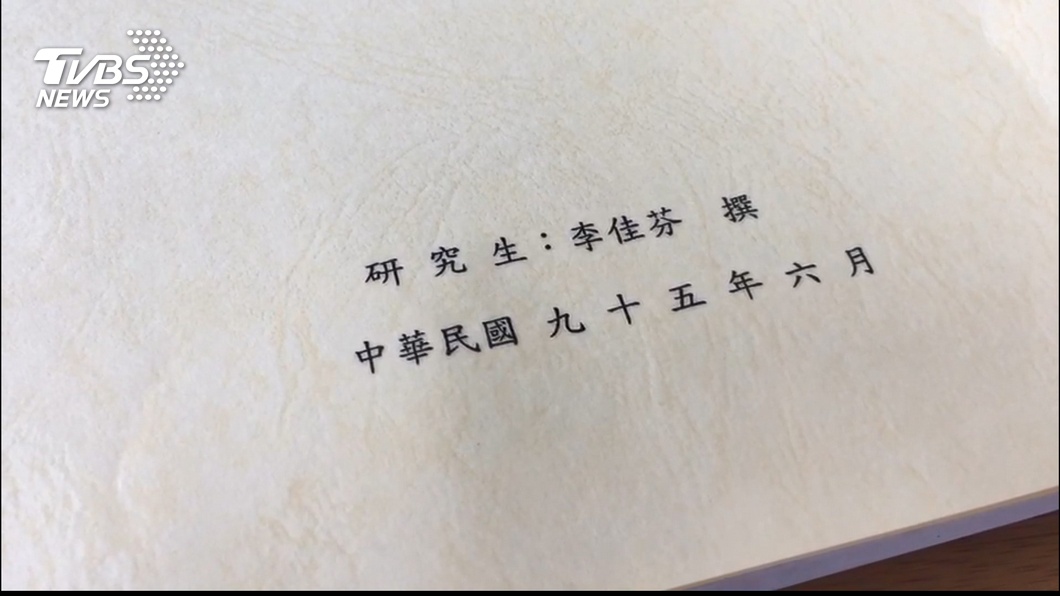 TVBS
NEWS
研究生：李佳芬　撰
中華民國 九十五年六月